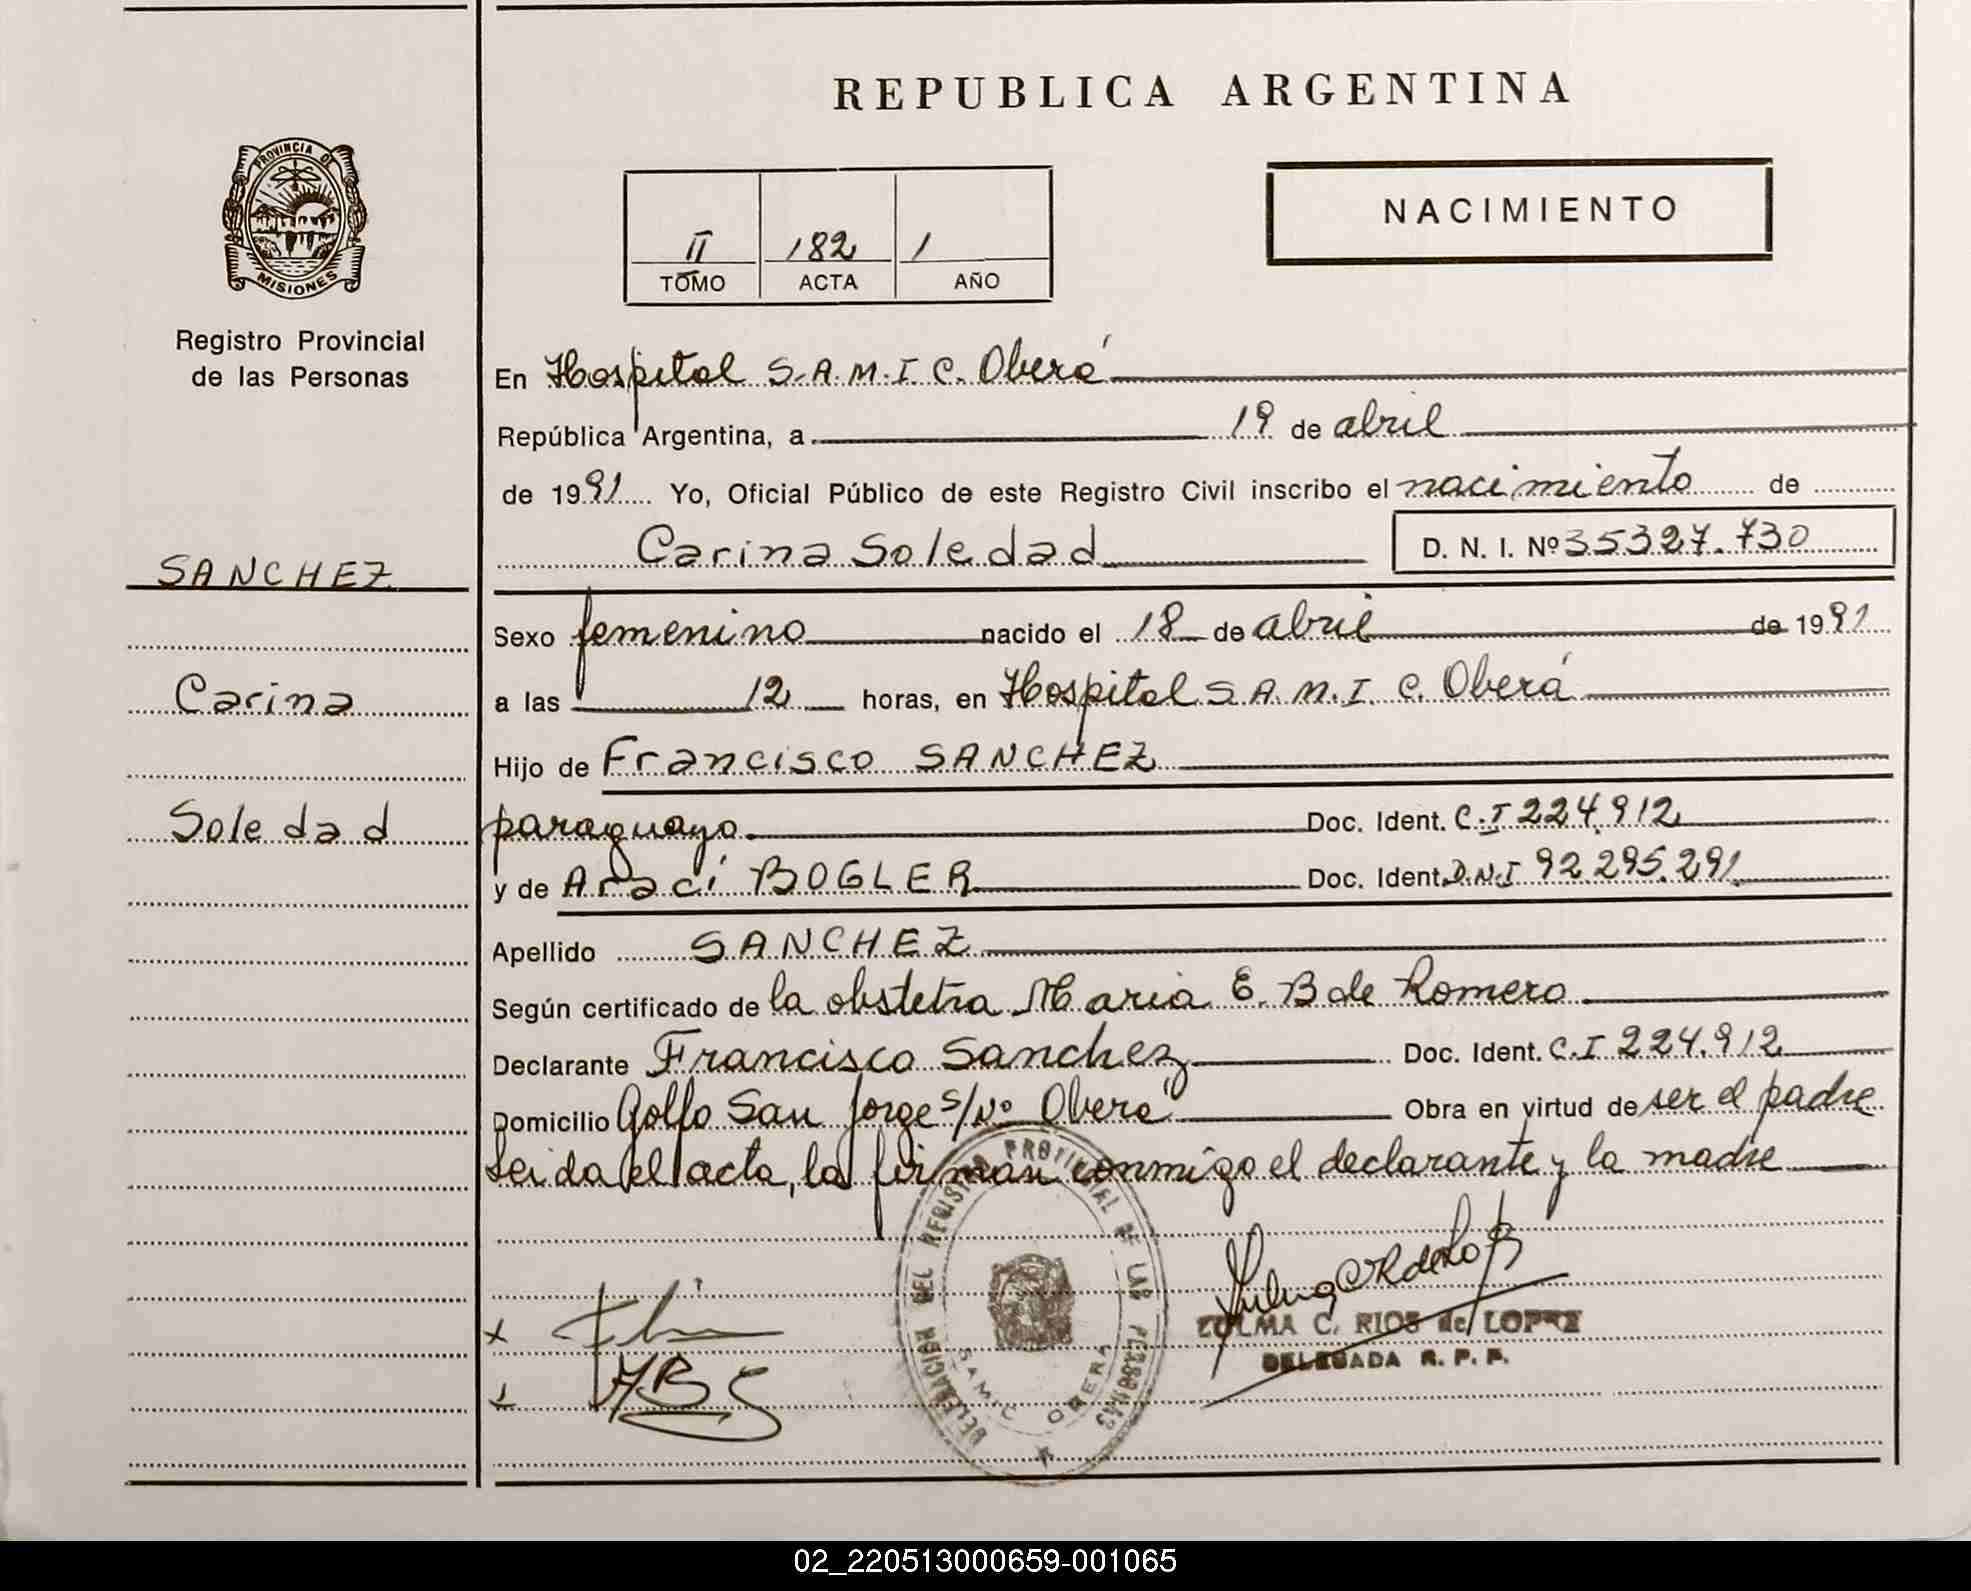 REPUBLICA ARGENTINA
PROVINCIA DE
MISIONES
Registro Provincial
de las Personas
NACIMIENTO
II 182 1
TOMO ACTA AÑO
En Hospital S.A.M.I.C. Oberá
República Argentina, a 19 de abril
de 1991 Yo, Oficial Público de este Registro Civil inscribo el nacimiento de
Carina Soledad D. N. I. Nº 35327.730
SANCHEZ
Carina
Soledad
Sexo femenino nacido el 18 de abril de 1991
a las 12 horas, en Hospital S.A.M.I.C. Oberá
Hijo de Francisco SANCHEZ
paraguayo Doc. Ident. C.I 224.912
y de Araci BOGLER Doc. Ident. D.N.I 92.295.291
Apellido SANCHEZ
Según certificado de la obstetra Maria E. B de Romero
Declarante Francisco Sanchez Doc. Ident. C.I. 224.912
Domicilio Golfo San Jorge s/Nº Oberá Obra en virtud de ser el padre
Leida el acta, la firman conmigo el declarante y la madre
DELEGACION DEL REGISTRO PROVINCIAL DE LAS PERSONAS
SAMIC OBERA
ZULMA C. RIOS de LOPEZ
DELEGADA R. P. P.
02_220513000659-001065